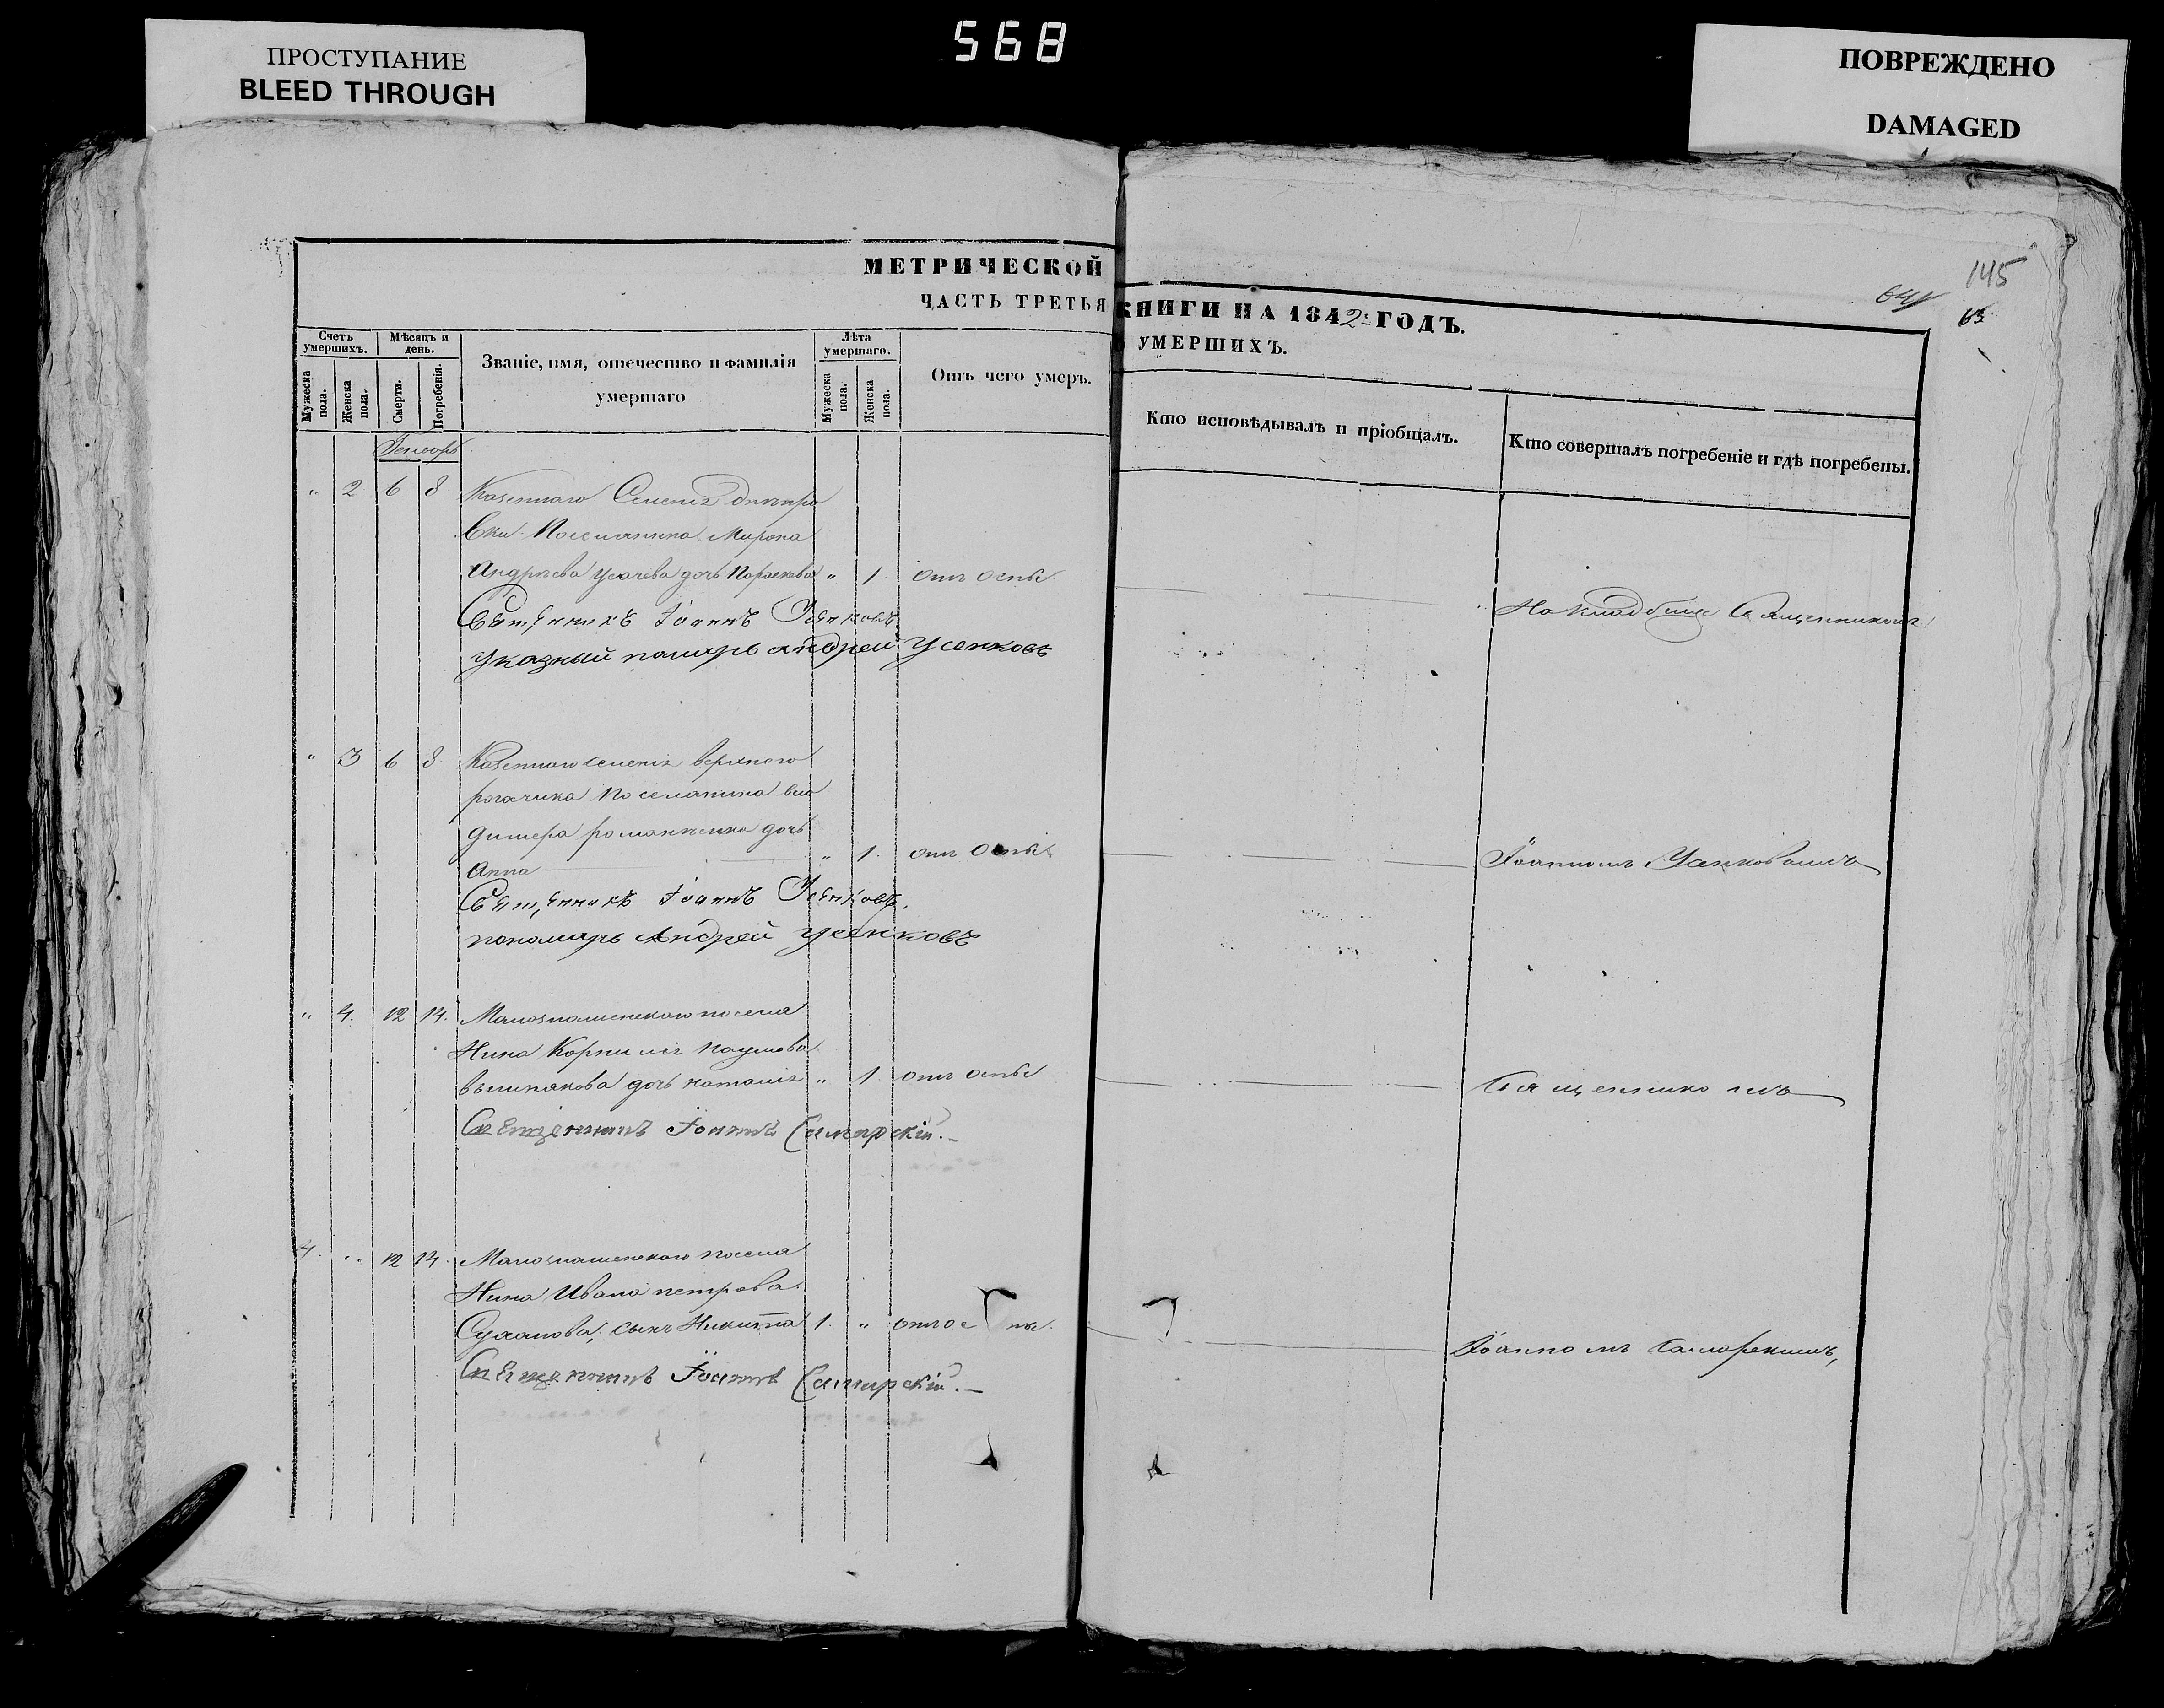 ПРОСТУПАНИЕ
BLEED THROUGH
568
ПОВРЕЖДЕНО
DAMAGED
145
641
63
МЕТРИЧЕСКОЙ КНИГИ НА 1842: ГОДЪ.
ЧАСТЬ ТРЕТЬЯ УМЕРШИХЪ.
Счетъ умершихъ.
Мужеска пола.
Женска пола.
Мѣсяцъ и день.
Смерти.
Погребенія.
Званіе, имя, отечество и фамилія умершаго
Лѣта умершаго.
Мужеска пола.
Женска пола.
Отъ чего умеръ.
Кто исповѣдывалъ и пріобщалъ.
Кто совершалъ погребеніе и гдѣ погребены.
" 2 6 8 Казеннаго Селенія Днепро
Поселянина Мирона
Андрѣева Усачева дочь " 1 отъ оспы
На кладбище Священникомъ
Священникъ Іоаннъ Усенковъ
Указный пономарь Андрей Усенковъ
" 3 6 8 Казеннаго селенія верхнего
рогачика поселянина вла
димера романженка дочь
Анна " 1. отъ оспы
Іоанномъ Усенковымъ
Священникъ Іоаннъ Усенковъ.
пономарь Андрей Усенковъ
" 4. 12 14. Малознаменского поселя
нина Корнилія Наумова
дочь наталія " 1 отъ оспы
Священникомъ
Священникъ Іоаннъ Самарскій.
4. " 12 14. Малознаменского поселя
нина Ивана петрова
сынъ Никита 1. " отъ оспы.
Іоанномъ Самарскимъ,
Священникъ Іоаннъ Самарскій.